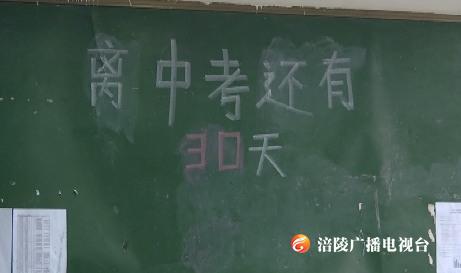 离中考还有
30天
涪陵广播电视台